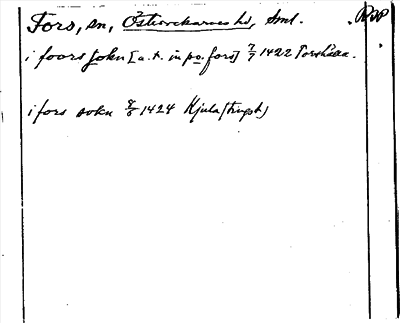 Fors, sn, Österrekarnes hd, Sml. RAP
i foors sokn [a.t. in po. fors] 7/7 1422 Torshälla.
i fors sokn 8/6 1424 Kjula (tingsh)